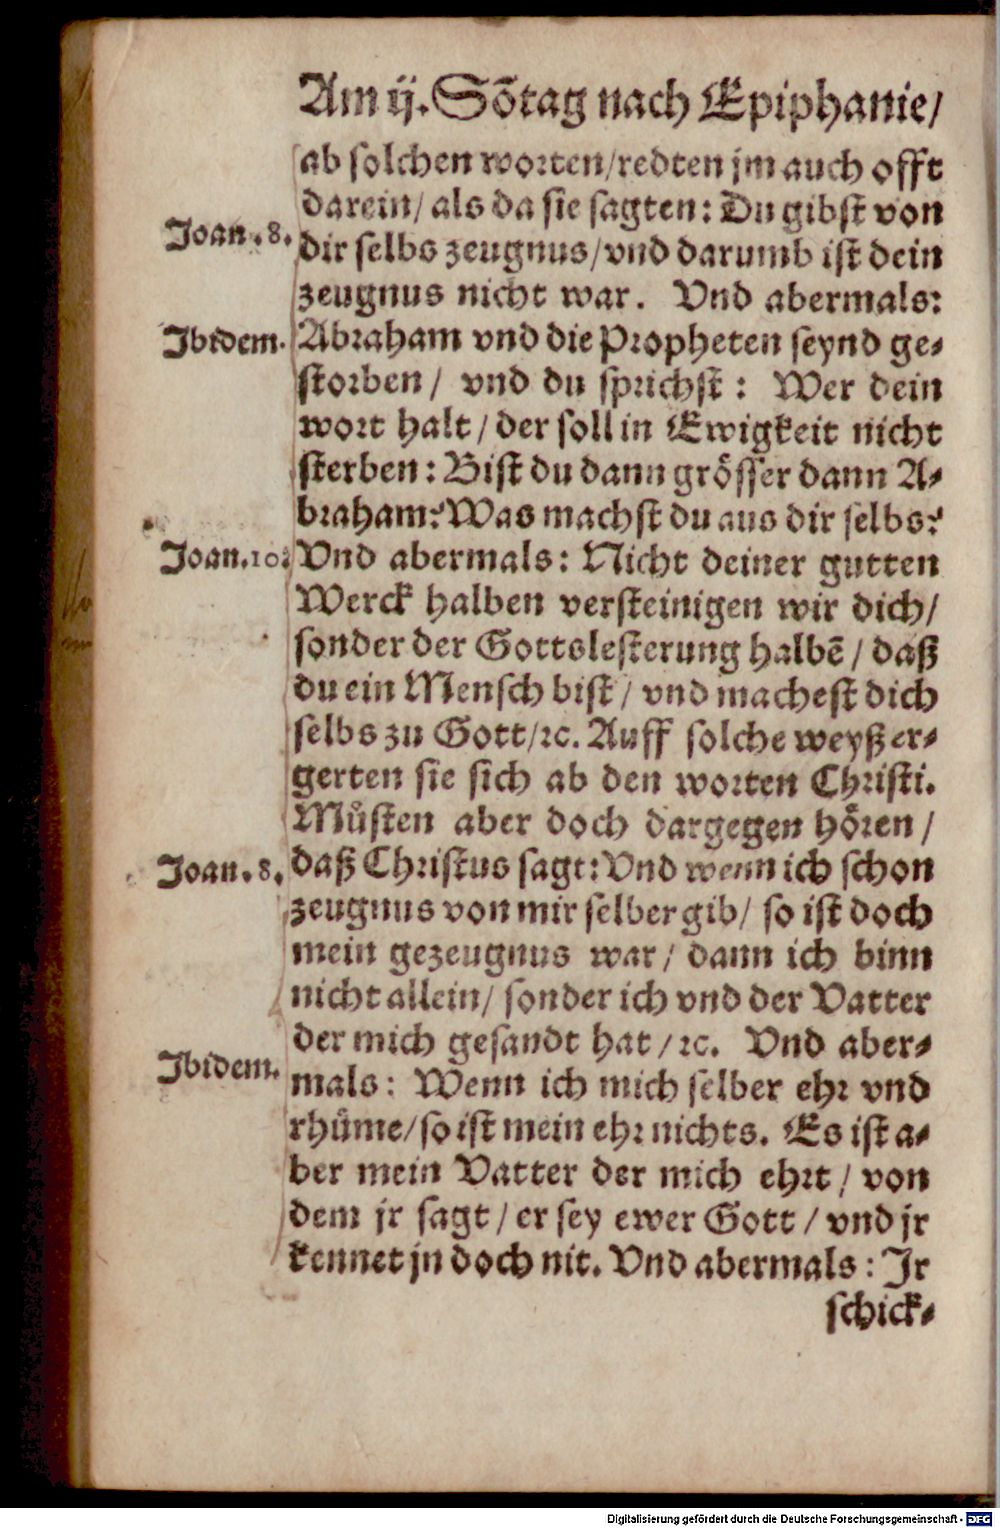 Am ij. Sõtag nach Epiphanie/
ab solchen worten/redten jm auch offt
darein/ als da sie sagten: Du gibst von
Joan. 8.
dir selbs zeugnus/vnd darumb ist dein
zeugnus nicht war. Vnd abermals:
Ibidem.
Abraham vnd die Propheten seynd ge-
storben/ vnd du sprichst: Wer dein
wort halt/der soll in Ewigkeit nicht
sterben: Bist du dann grösser dann A-
braham? Was machst du aus dir selbs?
Joan. 10.
Vnd abermals: Nicht deiner gutten
Werck halben versteinigen wir dich/
sonder der Gottslesterung halbẽ/ daß
du ein Mensch bist/ vnd machest dich
selbs zu Gott/ꝛc. Auff solche weyß er-
gerten sie sich ab den worten Christi.
Muͤsten aber doch dargegen hoͤren/
Joan. 8.
daß Christus sagt: Vnd wenn ich schon
zeugnus von mir selber gib/ so ist doch
mein gezeugnus war/ dann ich binn
nicht allein/ sonder ich vnd der Vatter
der mich gesandt hat/ꝛc. Vnd aber-
Ibidem.
mals: Wenn ich mich selber ehr vnd
rhuͤme/so ist mein ehr nichts. Es ist a-
ber mein Vatter der mich ehrt/ von
dem jr sagt/er sey ewer Gott/ vnd jr
kennet jn doch nit. Vnd abermals: Ir
schick-
Digitalisierung gefördert durch die Deutsche Forschungsgemeinschaft - DFG